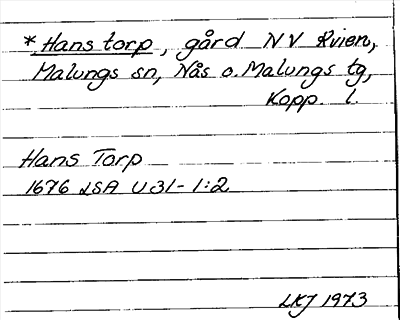 * Hans torp, gård NV Kvien,
Malungs sn, Nås o. Malungs tg,
Kopp. l.
Hans Torp
1676 LSA U31-1:2
LKJ 1973